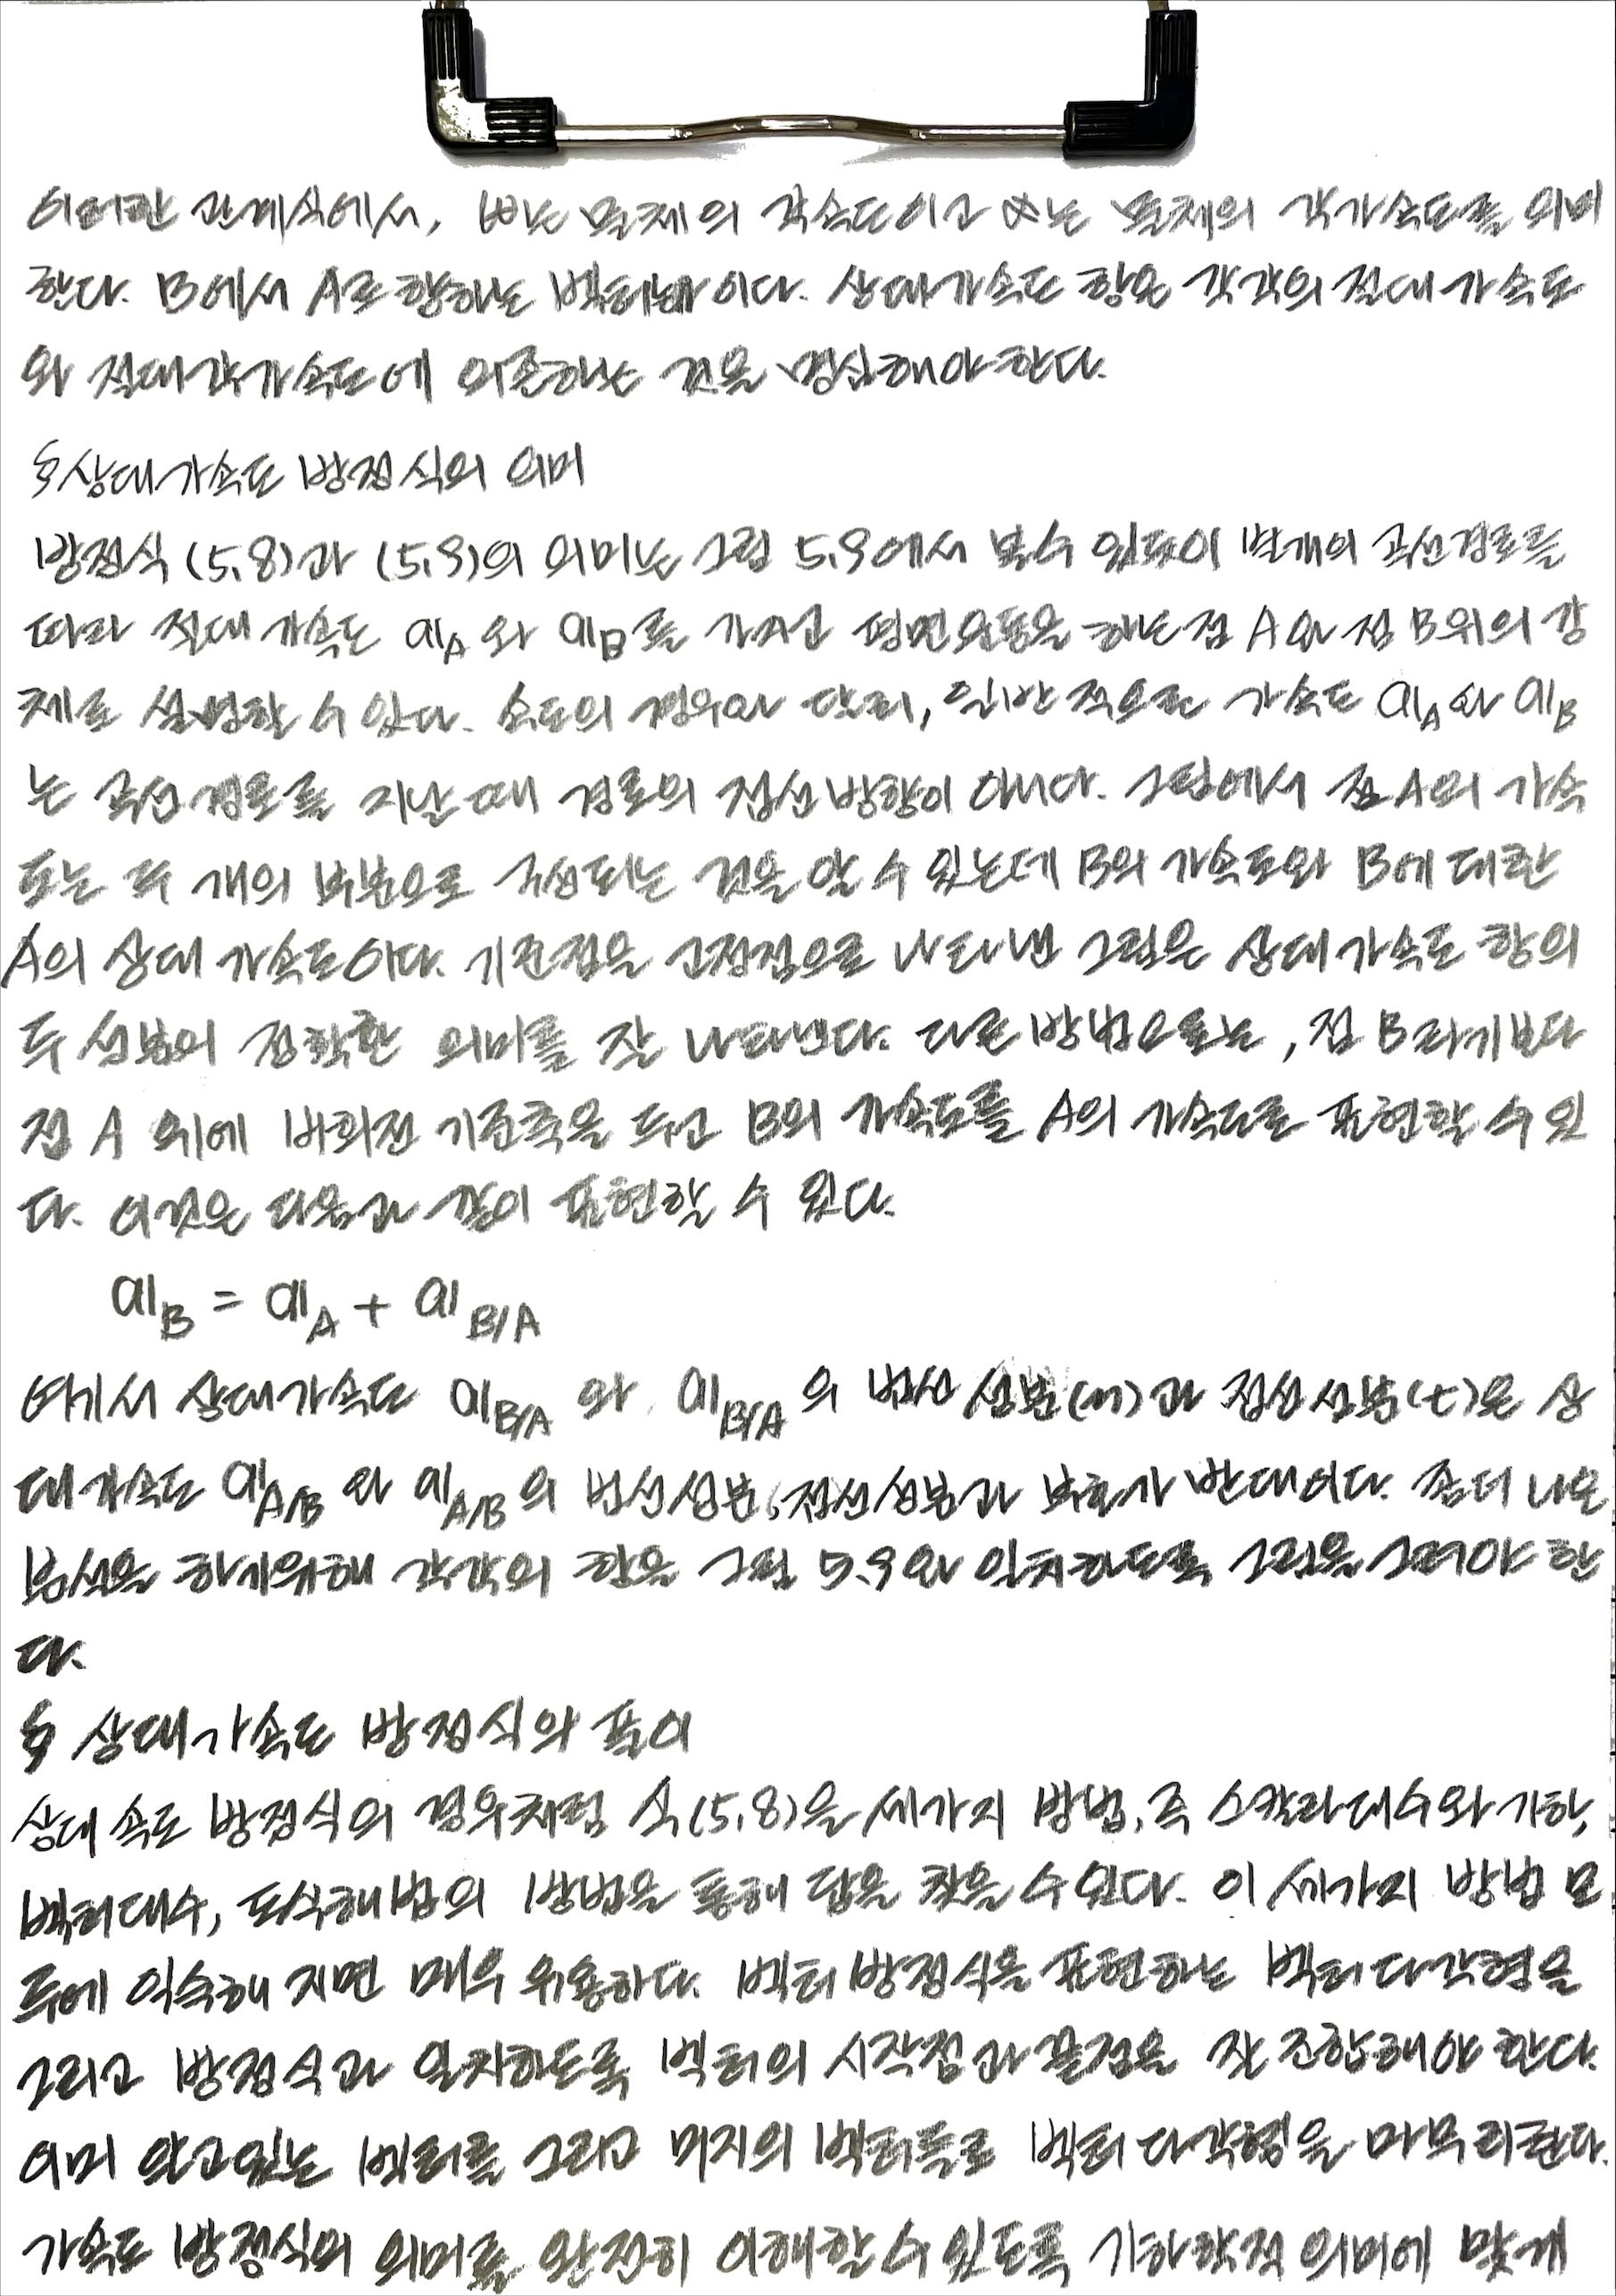 이러한 관계식에서, ω는 물체의 각속도이고 α는 물체의 각가속도를 의미
한다. B에서 A로 향하는 벡터는 이다. 상대가속도 항은 각각의 절대가속도
와 절대각가속도에 의존하는 것을 명심해야 한다.
§상대가속도 방정식의 의미
방정식 (5.8)과 (5.9)의 의미는 그림 5.9에서 볼 수 있듯이 별개의 곡선경로를
따라 절대 가속도 a_A와 a_B를 가지고 평면운동을 하는 점 A와 점 B위의 강
체로 설명할 수 있다. 속도의 경우와 달리, 일반적으로 가속도 a_A와 a_B
는 곡선경로를 지날 때 경로의 접선방향이 아니다. 그림에서 점 A의 가속
도는 두 개의 부분으로 구성되는 것을 알 수 있는데 B의 가속도와 B에 대한
A의 상대 가속도이다. 기준점을 고정점으로 나타낸 그림은 상대가속도 항의
두 성분의 정확한 의미를 잘 나타낸다. 다른 방법으로는, 점 B라기보다
점 A 위에 비회전 기준축을 두고 B의 가속도를 A의 가속도로 표현할 수 있
다. 이것은 다음과 같이 표현할 수 있다.
a_B = a_A + a_B/A
여기서 상대가속도 a_B/A 와 a_B/A의 법선 성분(n)과 접선성분(t)은 상
대가속도 a_A/B 와 a_A/B의 법선성분, 접선성분과 부호가 반대이다. 좀더 나은
분석을 하기위해 각각의 항을 그림 5.9와 일치하도록 그림을 그려야 한
다.
§ 상대가속도 방정식의 풀이
상대 속도 방정식의 경우처럼 식(5.8)을 세가지 방법, 즉 스칼라대수와 기하,
벡터대수, 도식해법의 방법을 통해 답을 찾을 수 있다. 이 세가지 방법 모
두에 익숙해 지면 매우 유용하다. 벡터방정식을 표현하는 벡터다각형을
그리고 방정식과 일치하도록 벡터의 시작점과 끝점을 잘 조합해야 한다.
이미 알고있는 벡터를 그리고 미지의 벡터들로 벡터 다각형을 마무리한다.
가속도 방정식의 의미를 완전히 이해할 수 있도록 기하학적 의미에 맞게